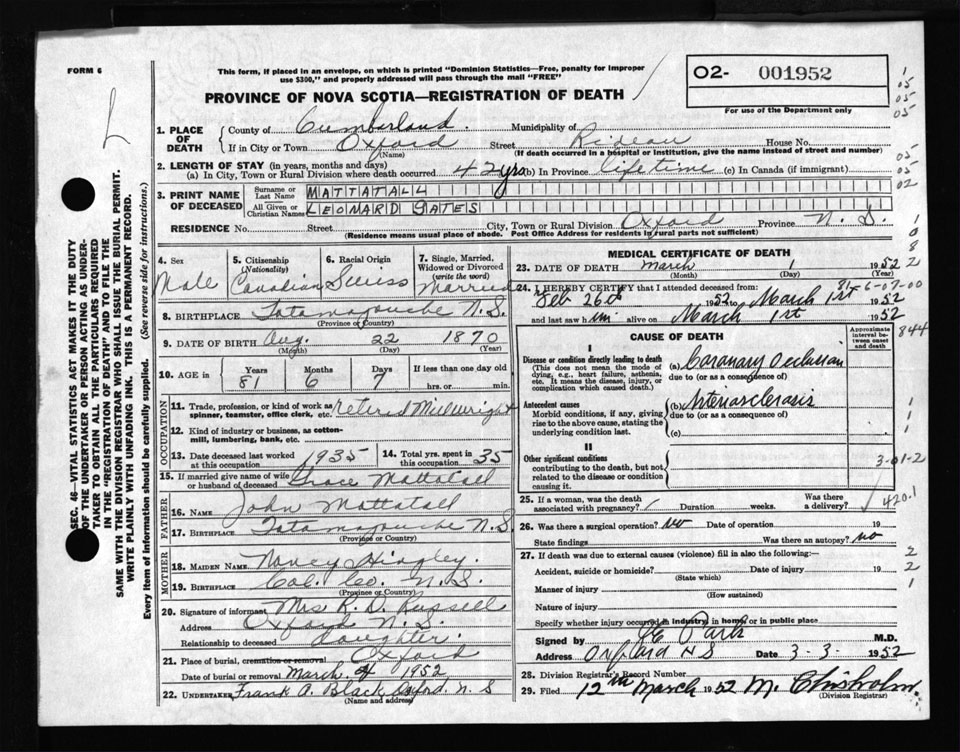 FORM 6
This form, if placed in an envelope, on which is printed "Dominion Statistics—Free, penalty for improper
use $300," and properly addressed will pass through the mail "FREE"
PROVINCE OF NOVA SCOTIA—REGISTRATION OF DEATH
02- 001952
For use of the Department only
1. PLACE OF DEATH
County of Cumberland. Municipality of
If in City or Town Oxford Street Rideau House No.
(Name) (If death occurred in a hospital or institution, give the name instead of street and number)
2. LENGTH OF STAY (in years, months and days)
(a) In City, Town or Rural Division where death occurred 42 yrs (b) In Province life time (c) In Canada (if immigrant)
3. PRINT NAME OF DECEASED
Surname or Last Name MATTATALL
All Given or Christian Names LEOMARD GATES
RESIDENCE No. Street City, Town or Rural Division Oxford Province N. S.
(Residence means usual place of abode. Post Office Address for residents in rural parts not sufficient)
4. Sex
Male
5. Citizenship (Nationality)
Canadian
6. Racial Origin
Swiss
7. Single, Married, Widowed or Divorced (write the word)
Married
8. BIRTHPLACE Tatamagouche N.S.
(Province or Country)
9. DATE OF BIRTH Aug. 22 1870
(Month) (Day) (Year)
10. AGE in Years Months Days If less than one day old
81 6 7 hrs. or min.
OCCUPATION
11. Trade, profession, or kind of work as spinner, teamster, office clerk, etc. retired Millwright
12. Kind of industry or business, as cotton-mill, lumbering, bank, etc.
13. Date deceased last worked at this occupation 1935
14. Total yrs. spent in this occupation 35
15. If married give name of wife or husband of deceased Grace Mattatall
FATHER
16. NAME John Mattatall
17. BIRTHPLACE Tatamagouche N.S
(Province or Country)
MOTHER
18. MAIDEN NAME Nancy Hingley.
19. BIRTHPLACE Col. Co. N.S.
(Province or Country)
20. Signature of informant Mrs R. D. Russell
Address Oxford N.S.
Relationship to deceased daughter.
21. Place of burial, cremation or removal Oxford
Date of burial or removal March 4 1952
22. UNDERTAKER Frank A. Black Oxford, N. S
(Name and address)
MEDICAL CERTIFICATE OF DEATH
23. DATE OF DEATH March 1 1952
(Month) (Day) (Year)
24. I HEREBY CERTIFY that I attended deceased from:
81-6-07-00
Feb 26th 1952 to March 1st 1952
and last saw him alive on March 1st 1952
CAUSE OF DEATH
Approximate interval between onset and death
I
Disease or condition directly leading to death
(This does not mean the mode of dying, e.g., heart failure, asthenia, etc. It means the disease, injury, or complication which caused death.)
(a) Coronary Occlusion
due to (or as a consequence of)
Antecedent causes
Morbid conditions, if any, giving rise to the above cause, stating the underlying condition last.
(b) Arteriosclerosis
due to (or as a consequence of)
(c)
II
Other significant conditions
contributing to the death, but not related to the disease or condition causing it.
25. If a woman, was the death associated with pregnancy? Duration weeks. Was there a delivery?
26. Was there a surgical operation? no Date of operation 19
State findings Was there an autopsy? no
27. If death was due to external causes (violence) fill in also the following:—
Accident, suicide or homicide? Date of injury 19
(State which)
Manner of injury
(How sustained)
Nature of injury
Specify whether injury occurred in industry, in home or in public place
Signed by M.D.
Address Oxford N S Date 3-3- 1952
28. Division Registrar's Record Number
29. Filed 12th March 1952 M. Chisholm.
(Division Registrar)
05
05
05
05
05
02
844
3-01-2
420.1
SEC. 46—VITAL STATISTICS ACT MAKES IT THE DUTY
OF THE UNDERTAKER OR PERSON ACTING AS UNDER-
TAKER TO OBTAIN ALL THE PARTICULARS REQUIRED
IN THE "REGISTRATION OF DEATH" AND TO FILE THE
SAME WITH THE DIVISION REGISTRAR WHO SHALL ISSUE THE BURIAL PERMIT.
WRITE PLAINLY WITH UNFADING INK. THIS IS A PERMANENT RECORD.
Every item of information should be carefully supplied. (See reverse side for instructions.)